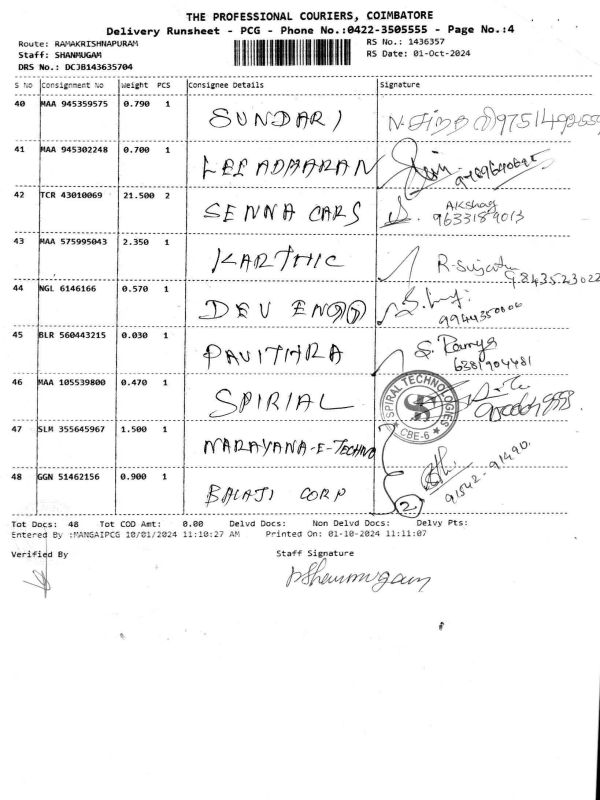 THE PROFESSIONAL COURIERS, COIMBATORE
Delivery Runsheet - PCG - Phone No.:0422-3505555 - Page No.:4
Route: RAMAKRISHNAPURAM
RS No.: 1436357
Staff: SHANMUGAM
RS Date: 01-Oct-2024
DRS No.: DCJB143635704
S No Consignment No Weight PCS Consignee Details Signature
40 MAA 945359575 0.790 1 SUNDARI
41 MAA 945302248 0.700 1 LEELADHARAN
42 TCR 43010069 21.500 2 SENNA CARS Akshay
9633189013
43 MAA 575995043 2.350 1 KARTHIC R-Sujatha
9843523022
44 NGL 6146166 0.570 1 DEV ENGG
9944350006
45 BLR 560443215 0.030 1 PAVITHRA S. Ramya
6381904481
46 MAA 105539800 0.470 1 SPIRIAL SPIRAL TECHNOLOGIES CBE-6
47 SLM 355645967 1.500 1 NARAYANA-E-TECHNO
48 GGN 51462156 0.900 1 BALAJI CORP 2
91542-91490.
Tot Docs: 48 Tot COD Amt: 0.00 Delvd Docs: Non Delvd Docs: Delvy Pts:
Entered By :MANGAIPCG 10/01/2024 11:10:27 AM Printed On: 01-10-2024 11:11:07
Verified By Staff Signature
P Shanmugam